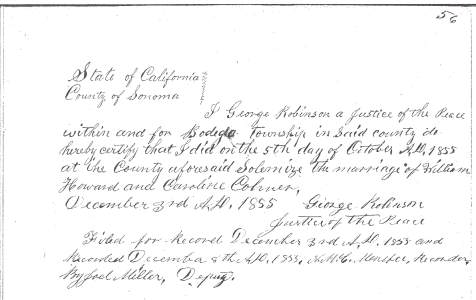 56
State of California
County of Sonoma
I George Robinson a Justice of the Peace
within and for Bodega Township in said county do
hereby certify that I did on the 5th day of October A.D. 1855
at the County aforesaid Solemnize the marriage of William
Howard and Caroline
December 3rd A.D. 1855 George Robinson
Justice of the Peace
Filed for Record December 3rd A.D. 1855 and
Recorded December 8th A.D. 1855, Menefee, Recorder,
By Joel Miller, Deputy.